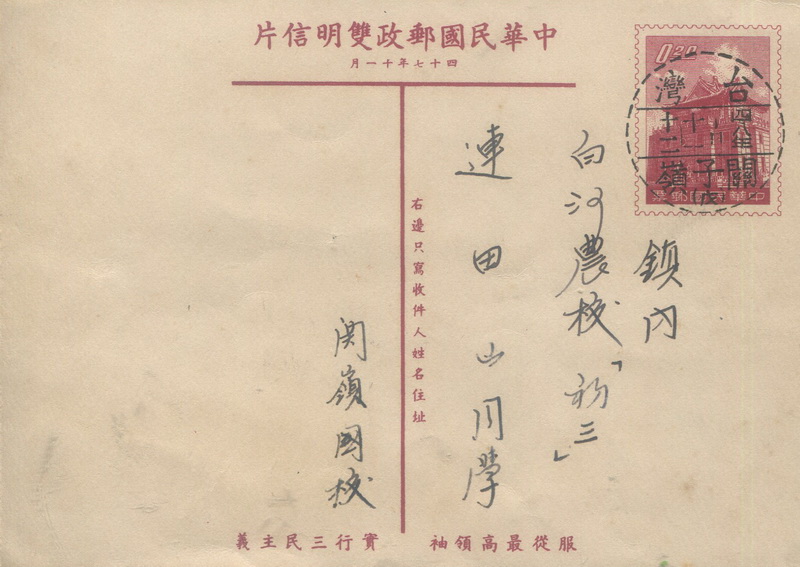 中華民國郵政雙明信片
四十七年十一月
0.20
台灣
四八年
十一
十二
關子嶺
(戊)
中華民國郵票
鎮內
白河農校「初三」
連田山同學
右邊只寫收件人姓名住址
関嶺國校
服從最高領袖
實行三民主義